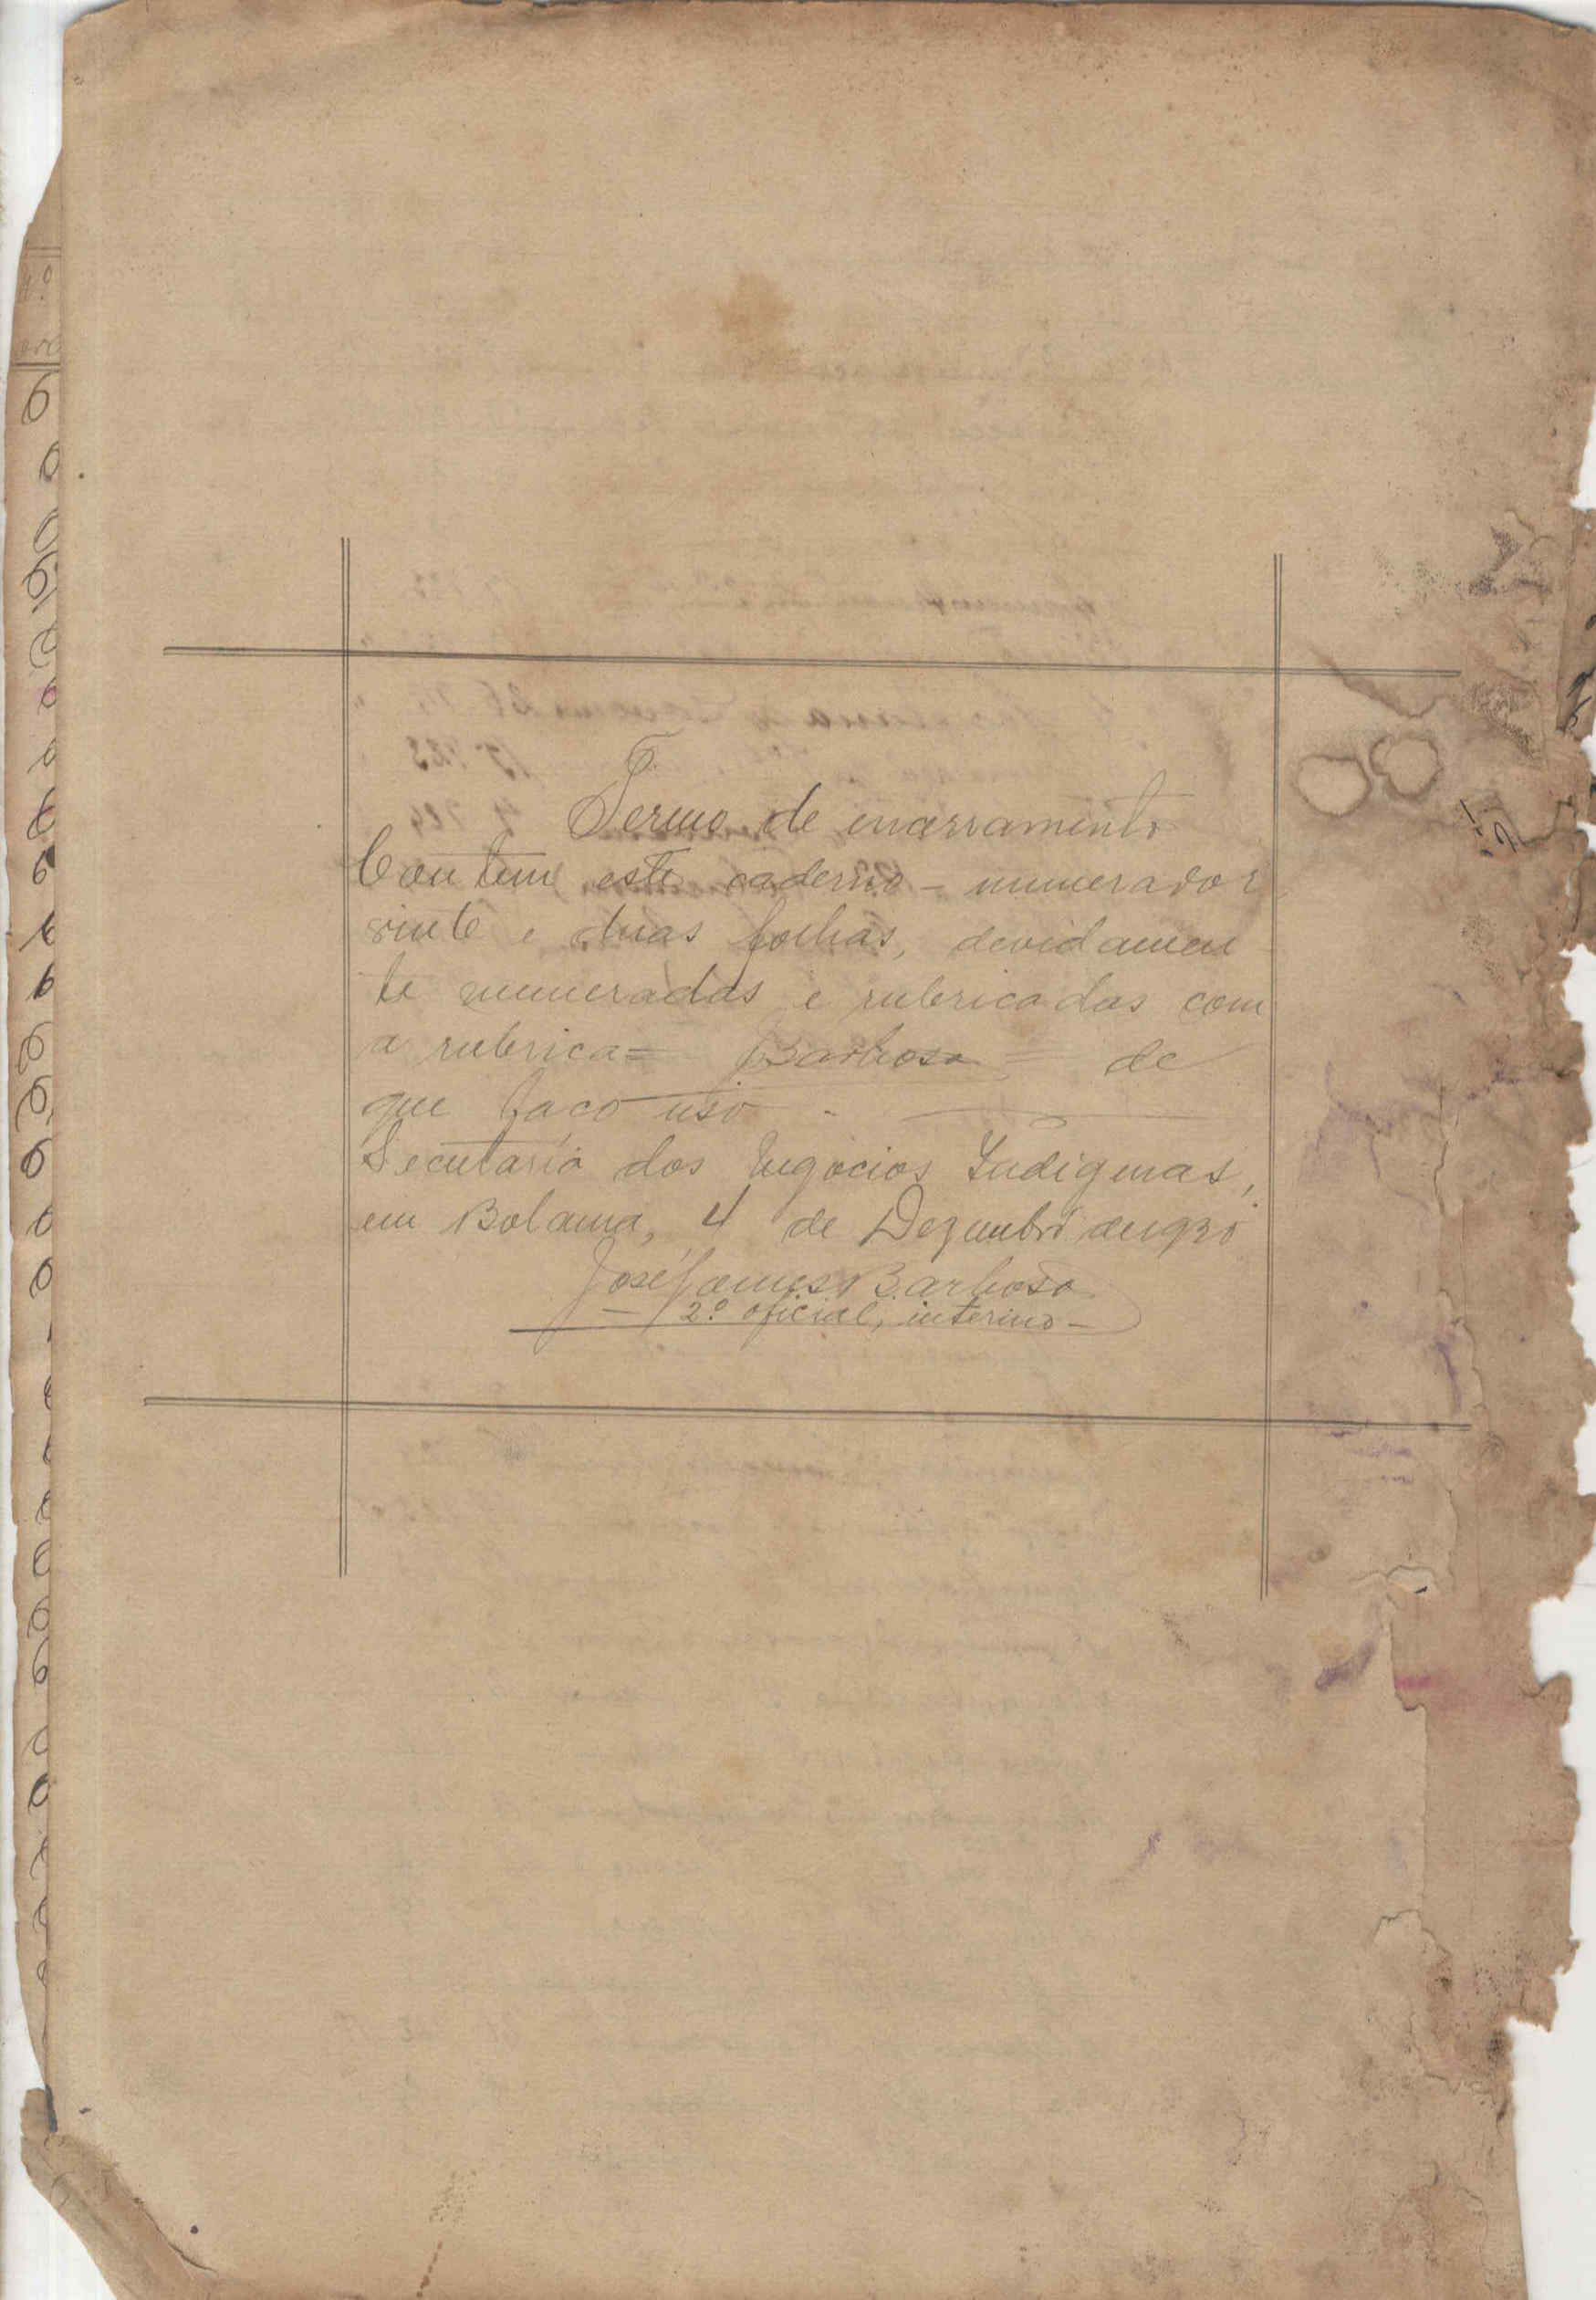 Termo de encerramento
Contem este caderno - numerador
vinte e duas folhas, devidamen
te numeradas e rubricadas com
a rubrica = Barbosa = de
que faço uso.
Secretaria dos Negocios Indigenas,
em Bolama, 4 de Dezembro de 1930
José Gomes Barbosa
- 2.º oficial, interino -